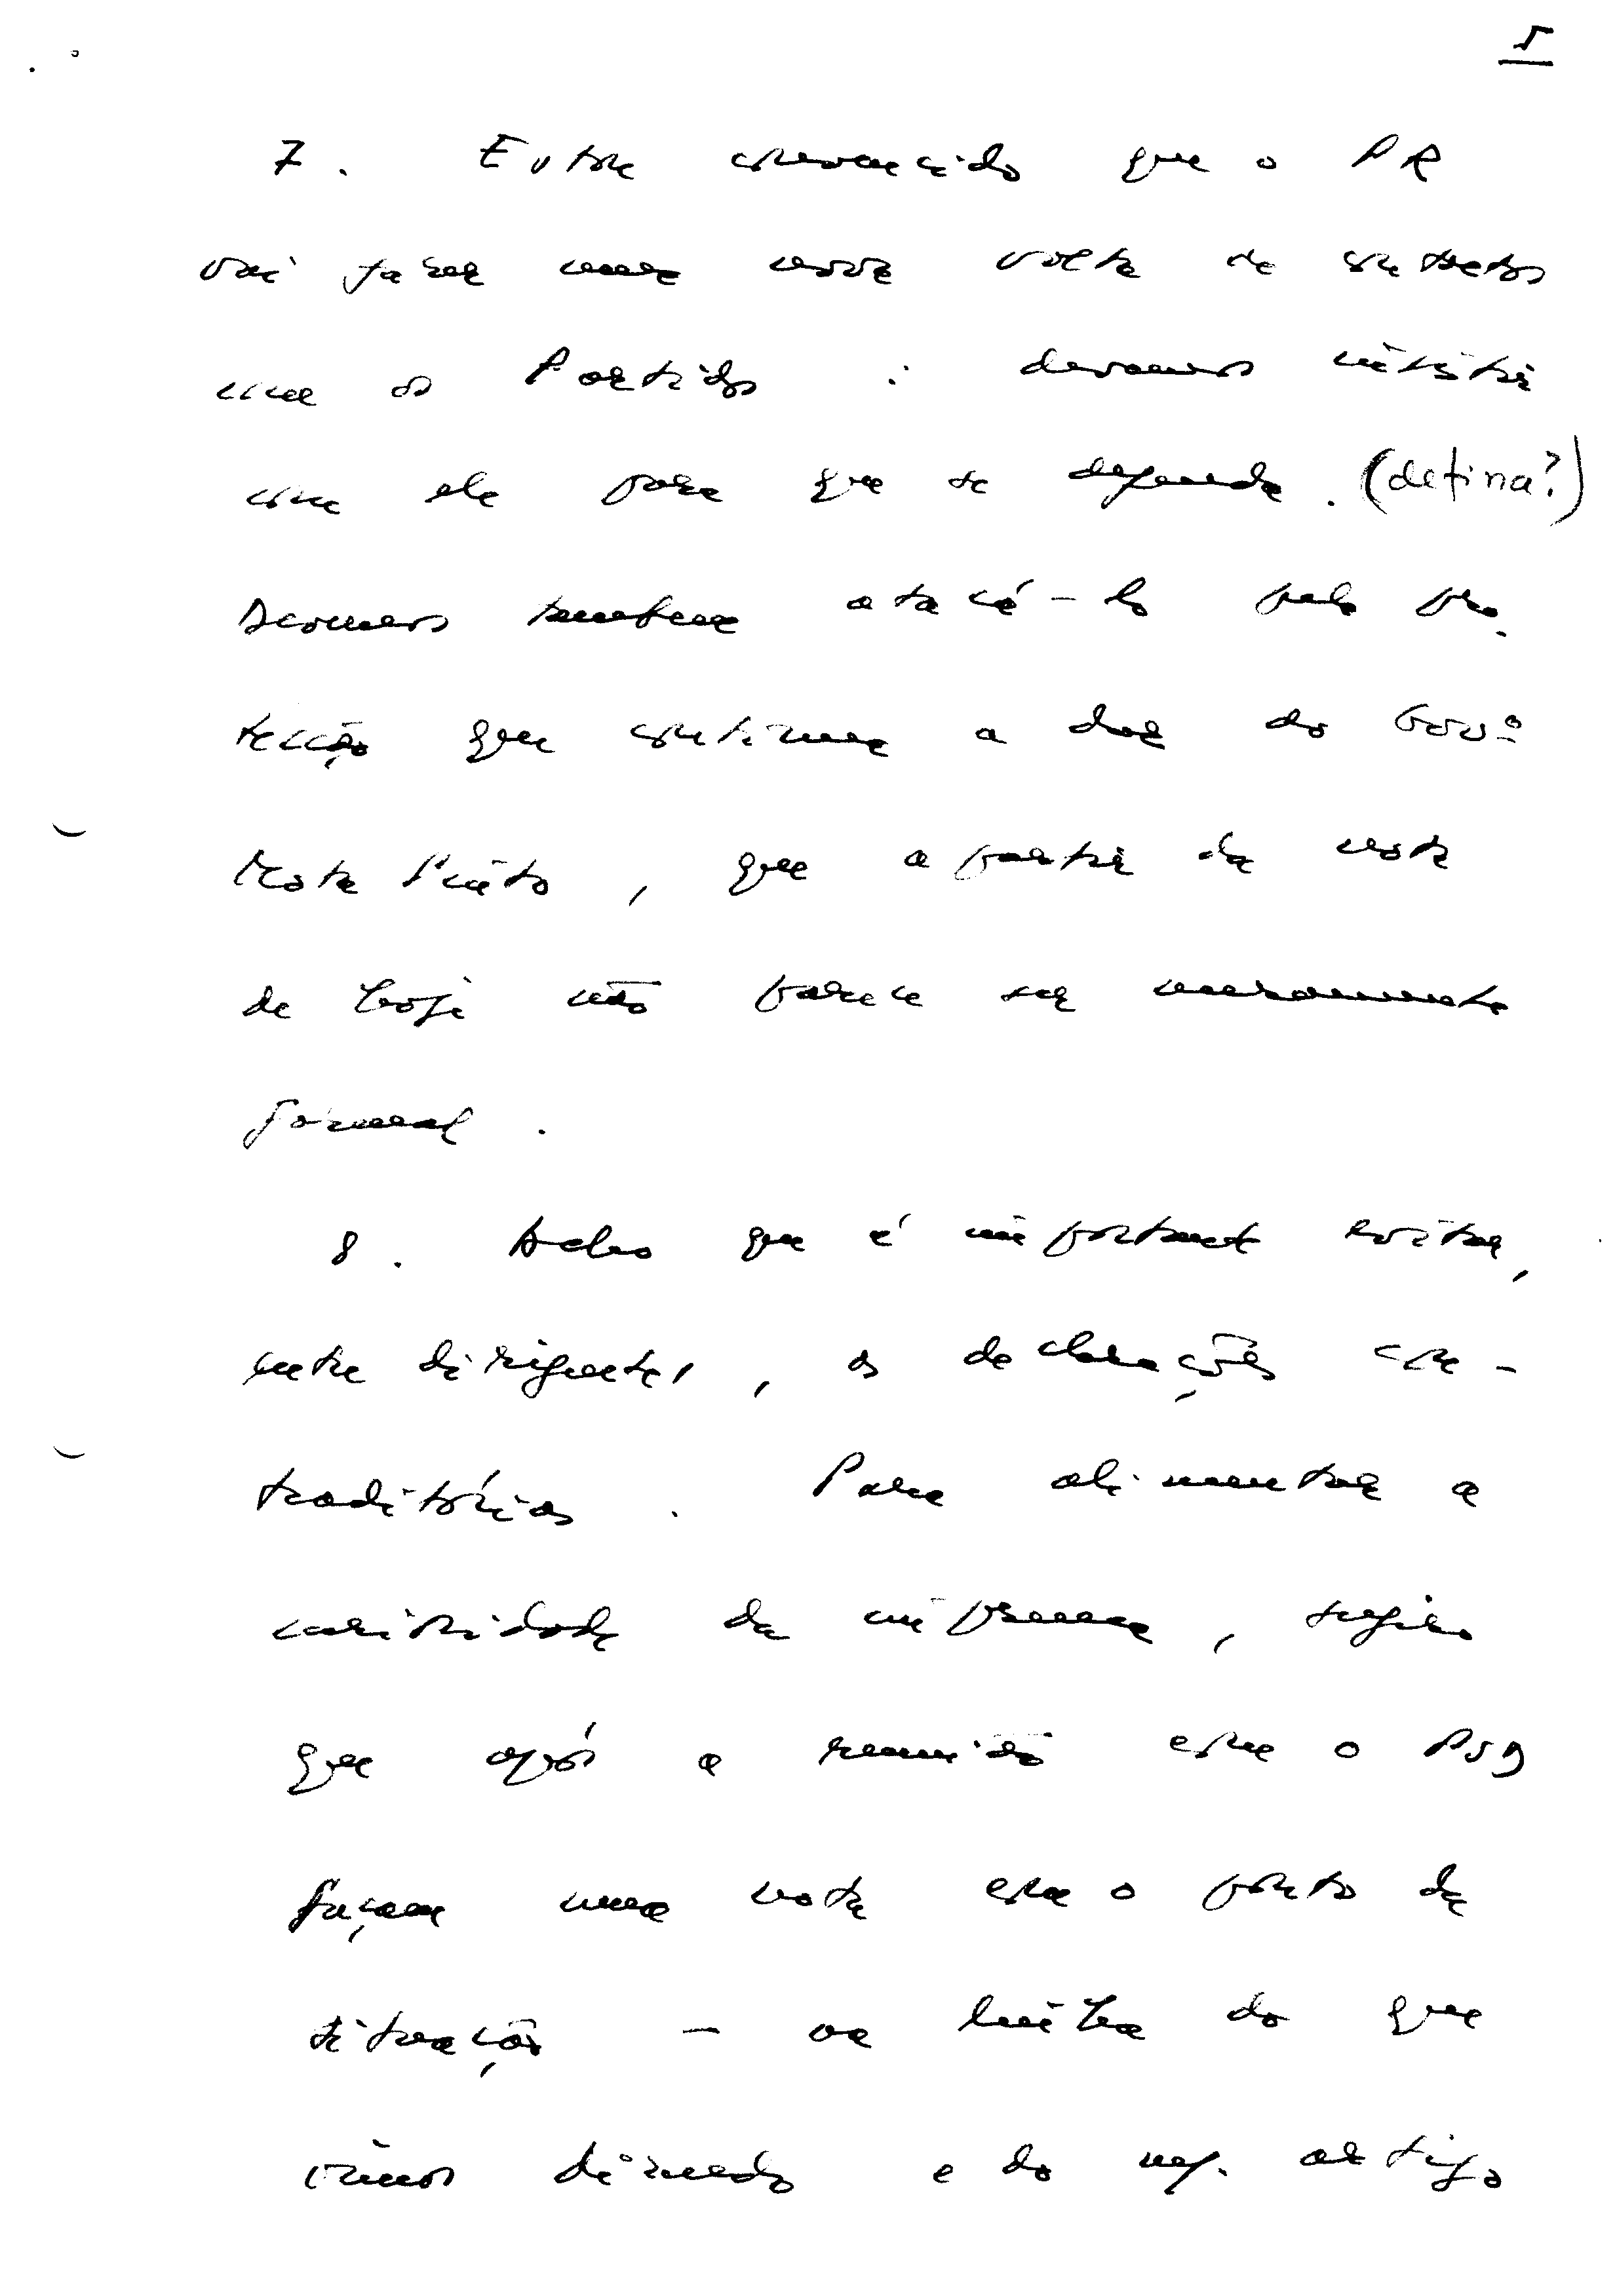 5
7. Estou convencido que o PR
vai fazer uma nova volta de contactos
com os Partidos: devemos insistir
com ele para que se defenda. (defina?)
Devemos também atacá-lo pela pro-
tecção que continua a dar ao Govº
Mota Pinto, que a partir da nota
de hoje não parece ser meramente
formal.
8. Acho que é importante evitar,
entre dirigentes, as declarações con-
traditórias. Para alimentar a
curiosidade da imprensa, sugiro
que após a reunião com o PSD
façam uma nota com o ponto da
situação - na linha do que
vimos dizendo e do meu artigo